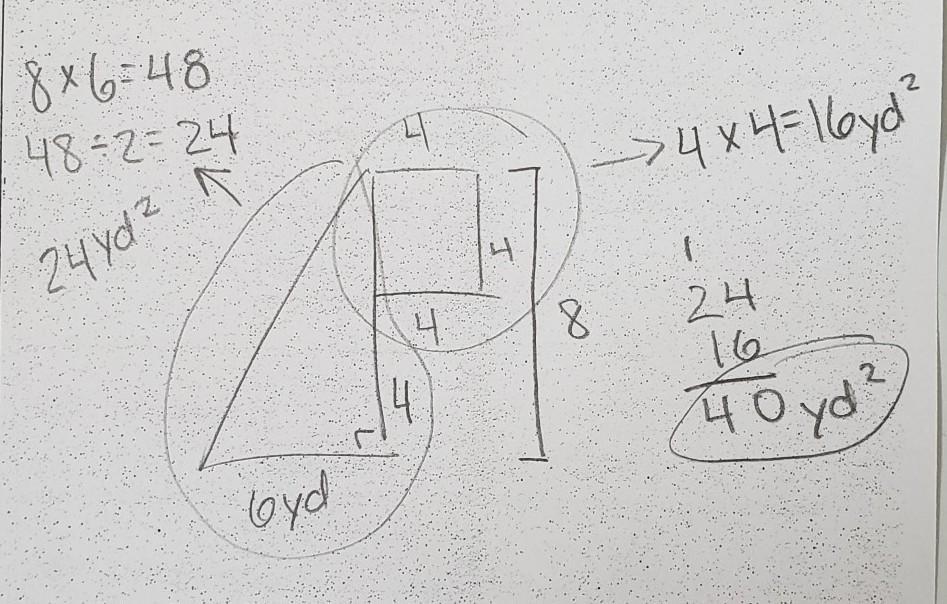 8×6=48
48÷2=24
24yd²
4
4
4
8
4
6yd
4×4=16yd²
1
24
16
40yd²